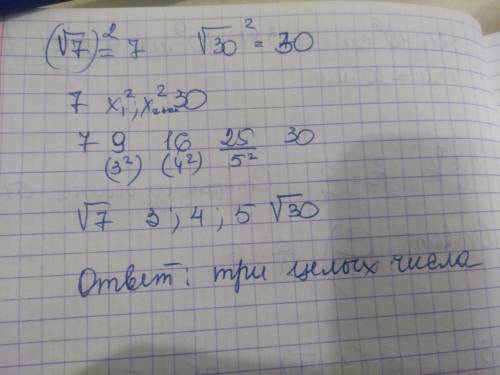 (√7)² = 7 √30² = 30
7 x₁²; x₂²... 30
7 9 16 25 30
(3²) (4²) 5²
√7 3; 4; 5 √30
Ответ: три целых числа